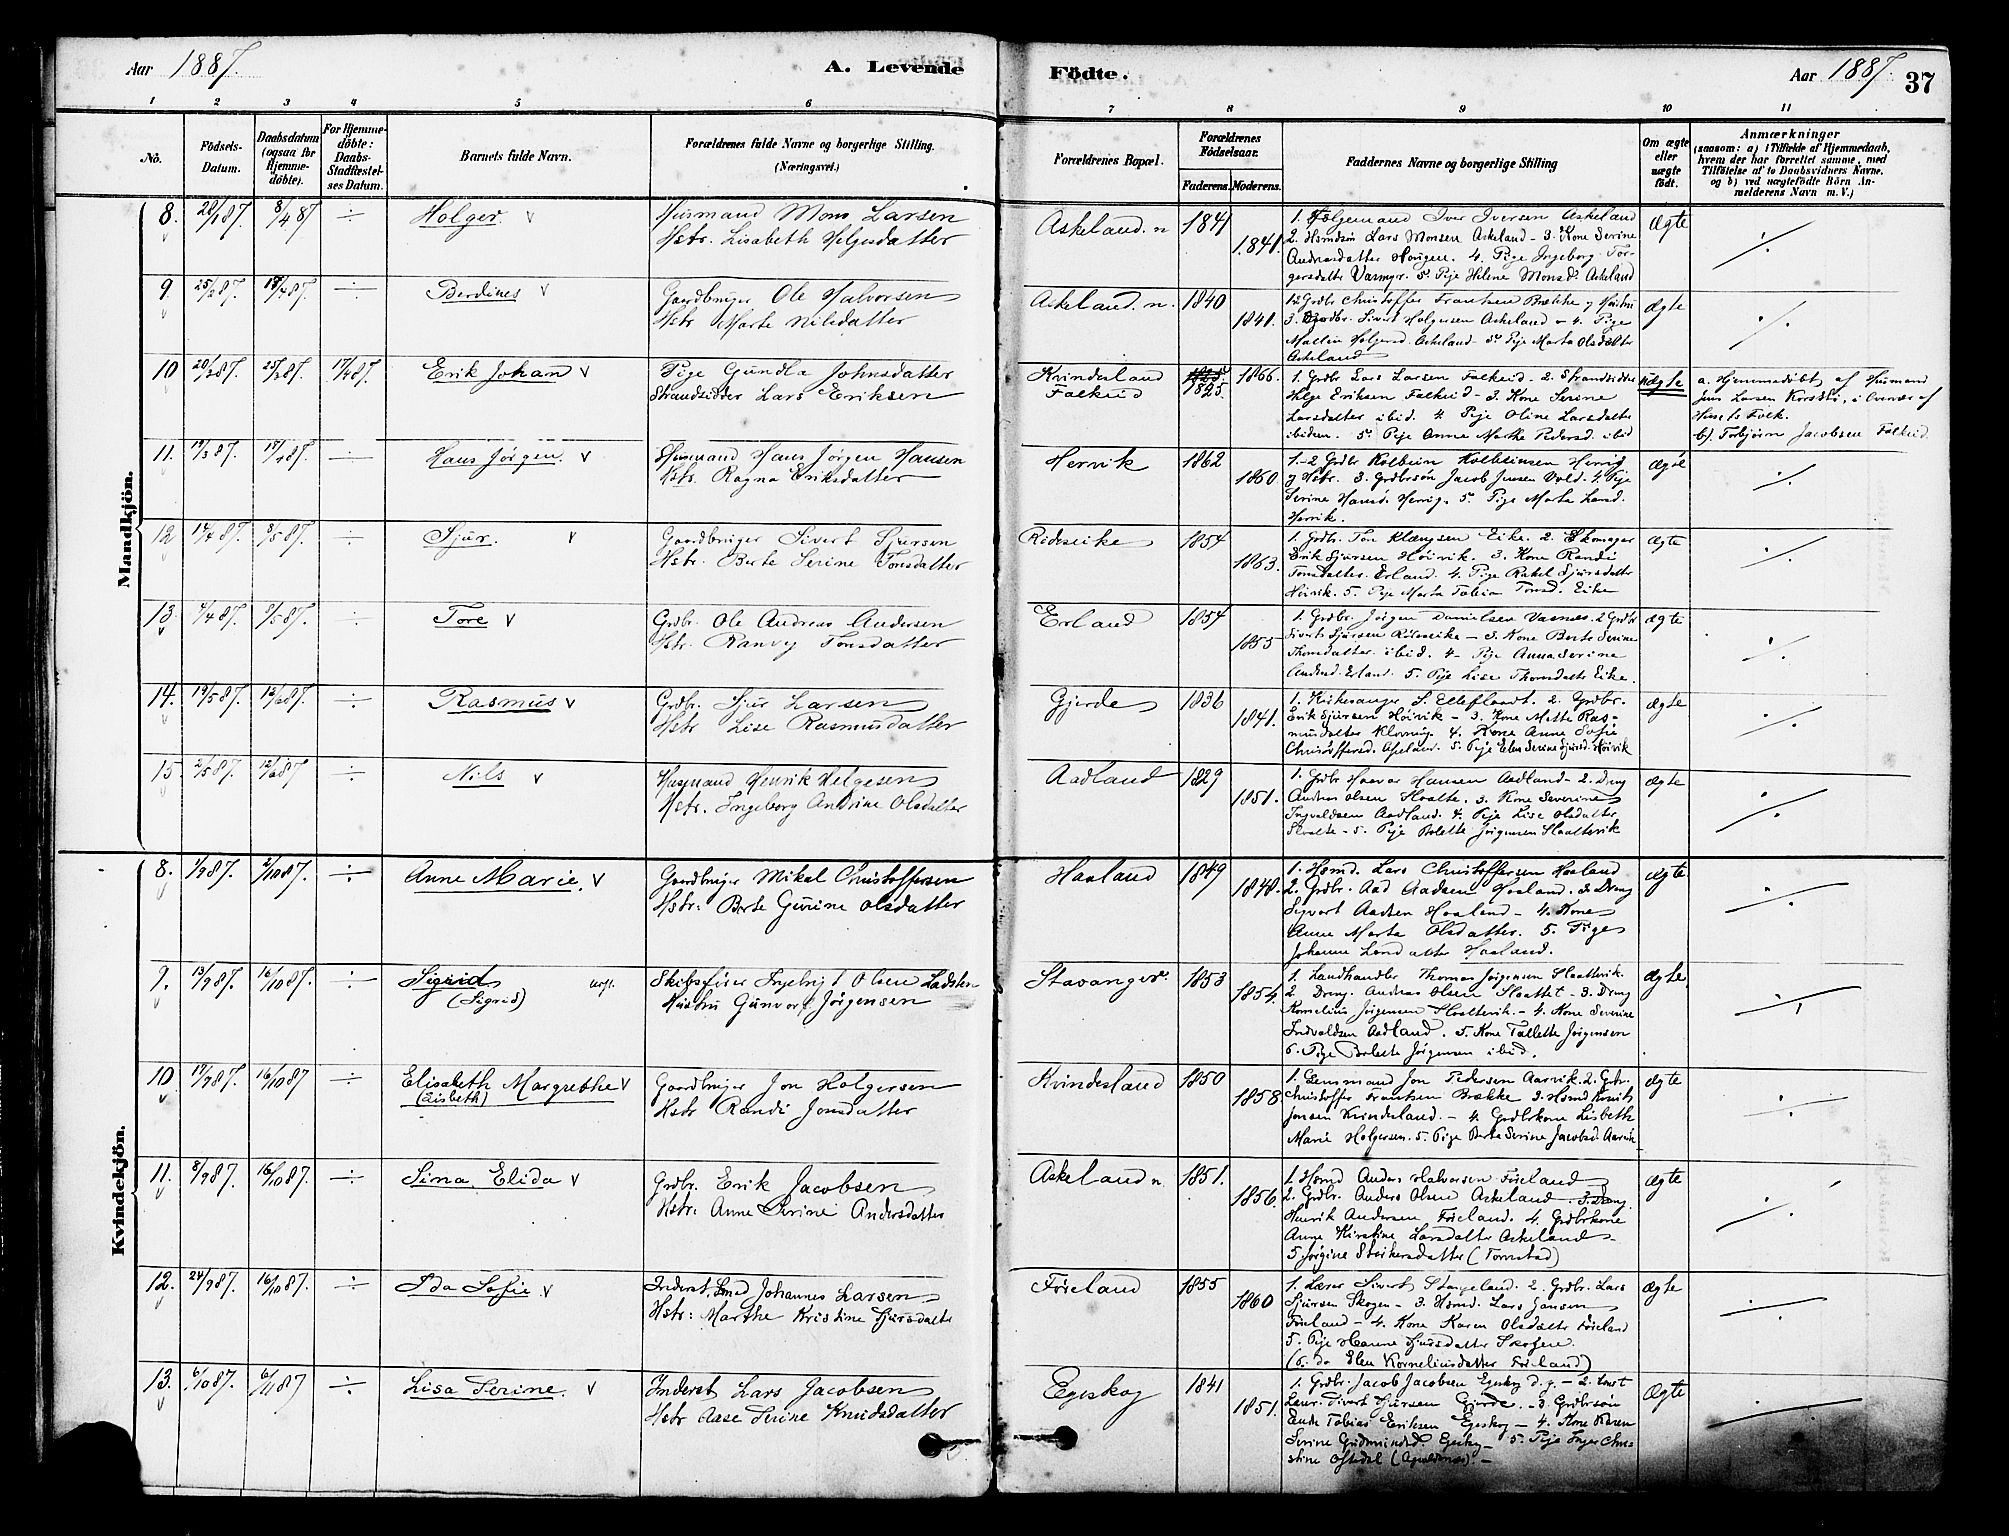 Aar 1887.
A. Levende
Födte.
Aar 1887
37
1 2 3 4 5 6 7 8 9 10 11
No.
Födsels-
Datum.
Daabsdatum
(ogsaa for
Hjemme-
döbte).
For Hjemme-
döbte:
Daabs-
Stadfestel-
ses Datum.
Barnets fulde Navn.
Forældrenes fulde Navne og borgerlige Stilling.
(Næringsvei.)
Forældrenes Bopæl.
Forældrenes
Födselsaar.
Faderens. Moderens.
Faddernes Navne og borgerlige Stilling
Om ægte
eller
uægte
født.
Anmærkninger
(saasom: a) i Tilfælde af Hjemmedaab,
hvem der har forrettet samme, med
Tilföielse af to Daabsvidners Navne,
og b) ved uægtefödte Börn An-
melderens Navn m. V.)
Mandkjön.
8. 20/187. 8/487 ÷ Holger. v
Husmand Mons Larsen
Hstr. Lisabeth Helgesdatter
Askeland. n 1841 1841.
1. Følgemand Iver Iversen Askeland
2. Husmdsøn Lars Monsen Askeland - 3. Kone Serine
Andreasdatter Hougen. 4. Pige Ingeborg Tor-
gersdatter Varmyr. 5. Pige Helene Monsd. Askeland
Ægte
9. 25/287. 18/487. ÷ Berdines v
Gaardbruger Ole Halvorsen
Hstr Marte Nilsdatter
Askeland. n. 1840 1841.
12 Grdbr Christoffer Frantsen Brekke og Hustru
3. Grdbr. Sivert Holgersen Askeland - 4. Pige
Mallin Holgersd. Askeland - 5. Pige Marta Olsdatter
Askeland
ægte
10 20/287. 25/387. 17/487. Erik Johan v
Pige Gundla Johnsdatter
Strandsidder Lars Eriksen
Kvindesland
Falkeid
1825. 1866.
1. Grdbr Lars Larsen Falkeid. 2. Strandsidder
Helge Eriksen Falkeid - 3. Kone Serine
Larsdatter ibid. 4 Pige Oline Larsdatter
ibidem. 5. Pige Anne Marthe Pedersd. ibid
uægte
a. Hjemmedøbt af Husmand
Jens Larsen Korsthi, i Overvær af
Husets Folk.
b). Torbjørn Jacobsen Falkeid.
11. 19/387. 17/487. — Hans Jørgen. v
Husmand Hans Jørgen Hansen
Hstr. Ragna Eriksdatter
Hervik 1862 1860
1.-2 Grdbr Kolbein Kolbeinsen Hervig
og Hstr. 3. Grdbrsøn Jacob Jensen Vold. 4. Pige
Serine Hansd. Hervig. 5. Pige Marta Larsd.
Hervik.
ægte
12 14/487. 8/587. ÷ Sjur. v
Gaardbruger Sivert Sjursen
Hstr. Berte Serine Tonsdatter
Rødseike 1854 1863.
1. Grdbr. Ton Klængsen Eike. 2. Skomager
Erik Sjursen Høivik. 3. Kone Randi
Tonsdatter. Erland. 4. Pige Rakel Sjursdatter
Høivik. 5. Pige Marta Tobia Tonsd. Eike
ægte
13. 4/487. 9/587. ÷ Tore v
Grdbr. Ole Andreas Andersen
Hstr. Ranvy Tonsdatter
Erland 1854 1855
1. Grdbr. Jørgen Danielsen Vasnes. 2 Grdbr
Sivert Sjursen Rødseike - 3. Kone Berte Serine
Thonsdatter ibid. 4 - Pige Anna Serine
Andersd. Erland. 5. Pige Lise Thonsdatter Eike.
ægte
14. 19/587. 12/687. ÷ Rasmus v
Grdbr. Sjur Larsen
Hstr Lise Rasmusdatter
Gjerde 1836 1841.
1. Kirkesanger S. Elleflaadt. 2. Grdbr.
Erik Sjursen Høivik - 3. Kone Mette Ras-
musdatter Klovning. 4. Kone Anne Sofie
Christoffersd. Apeland. 5. Pige Elen Serine Sjursd. Høivik
ægte
15 2/587. 12/687. ÷ Nils v
Husmand Henrik Helgesen
Hstr. Ingeborg Andrine Olsdatter
Aadland 1829 1851.
1. Grdbr Haavar Hansen Aadland - 2. Dreng
Andreas Olsen Slaatte. 3. Kone Severine
Ingvaldsen Aadland. 4. Pige Lise Olsdatter
Slaatte - 5. Pige Bolette Jørgensen Slaattevik
ægte
Kvindekjön.
8. 1/987. 2/1087. ÷ Anne Marie. v
Gaardbruger Mikal Christoffersen
Hstr: Berte Gurine Olsdatter
Haaland 1849 1848.
1. Hsmd. Lars Christoffersen Haaland
2. Grdbr. Aad Aadsen Haaland. 3. Dreng
Sigvart Aadsen Haaland - 4. Kone
Anne Marta Olsdatter. 5. Pige
Johanne Larsdatter Haaland.
ægte
9. 13/987. 16/1087. ÷ Sigrid
(Sigrid)
Skibsfører Ingebrigt Olsen Ladsten
Hustru Gunvor Jørgensen
Stavanger. 1853 1854.
1. Landhandler Thomas Jørgensen Slaattevik.
2. Dreng. Andreas Olsen Slaattet - 3. Dreng
Kornelius Jørgensen Slaattevik. - 4. Kone Severine
Indvaldsen Aadland. 5. Kone Tallette Jørgensen
6. Pige Bolette Jørgensen ibid.
ægte
10 17/987. 16/1087 ÷ Elisabeth Margrethe v
(Lisbeth)
Gaardbruger Jon Holgersen
Hstr Randi Jonsdatter
Kvindesland 1850 1858
1. Lensmand Jon Pedersen Aarvik. 2. Grbr.
Christoffer Frantsen Brække 3. Hsmd Knut
Jonsen Kvindesland. - 4. Grdbrkone Lisbeth
Marie Holgersen. 5. Pige Berte Serine Jacobsd. Aarvik
ægte
11. 8/987. 16/1087. ÷ Sina Elida v
Grdbr. Erik Jacobsen
Hstr: Anne Serine Andersdatter
Askeland n. 1851. 1856.
1. Hsmd Anders Halvorsen Føreland
2. Grdbr. Anders Olsen Askeland. 3. Dreng
Henrik Andersen Føreland. 4. Grdbrkone
Anne Kirstine Larsdatter Askeland -
5 Jørgine Sivkersdatter (Tornstad)
ægte
12. 24/987. 16/1087. ÷ Ida Sofie. v
Inderst, Smed Johannes Larsen
Hstr: Marthe Kristine Sjursdatter
Føreland 1855 1860
1. Lærer Sivert Stangeland. 2. Grdbr. Lars
Sjursen Skogen - 3. Hsmd. Lars Jansen
Føreland - 4. Kone Karen Olsdatter Føreland
5. Pige Hanne Sjursdatter Skogen.
(6. do Elen Korneliusdatter Føreland)
ægte
13. 6/1087. 6/1187 ÷ Lisa Serine. v
Inderst Lars Jacobsen
Hstr Aase Serine Knudsdatter
Egeskog 1841 1851.
1. Grdbr. Jacob Jacobsen Egeskog d.y. - 2. Const
Lærer Sivert Sjursen Gjerde. - 3. Grdbrsøn
Enok Tobias Eriksen Egeskog - 4. Kone Karen
Serine Gudmundsd. Egeskog - 5. Pige Inger Chri-
stine Oftedal (Apeldnæs). -
Ægte